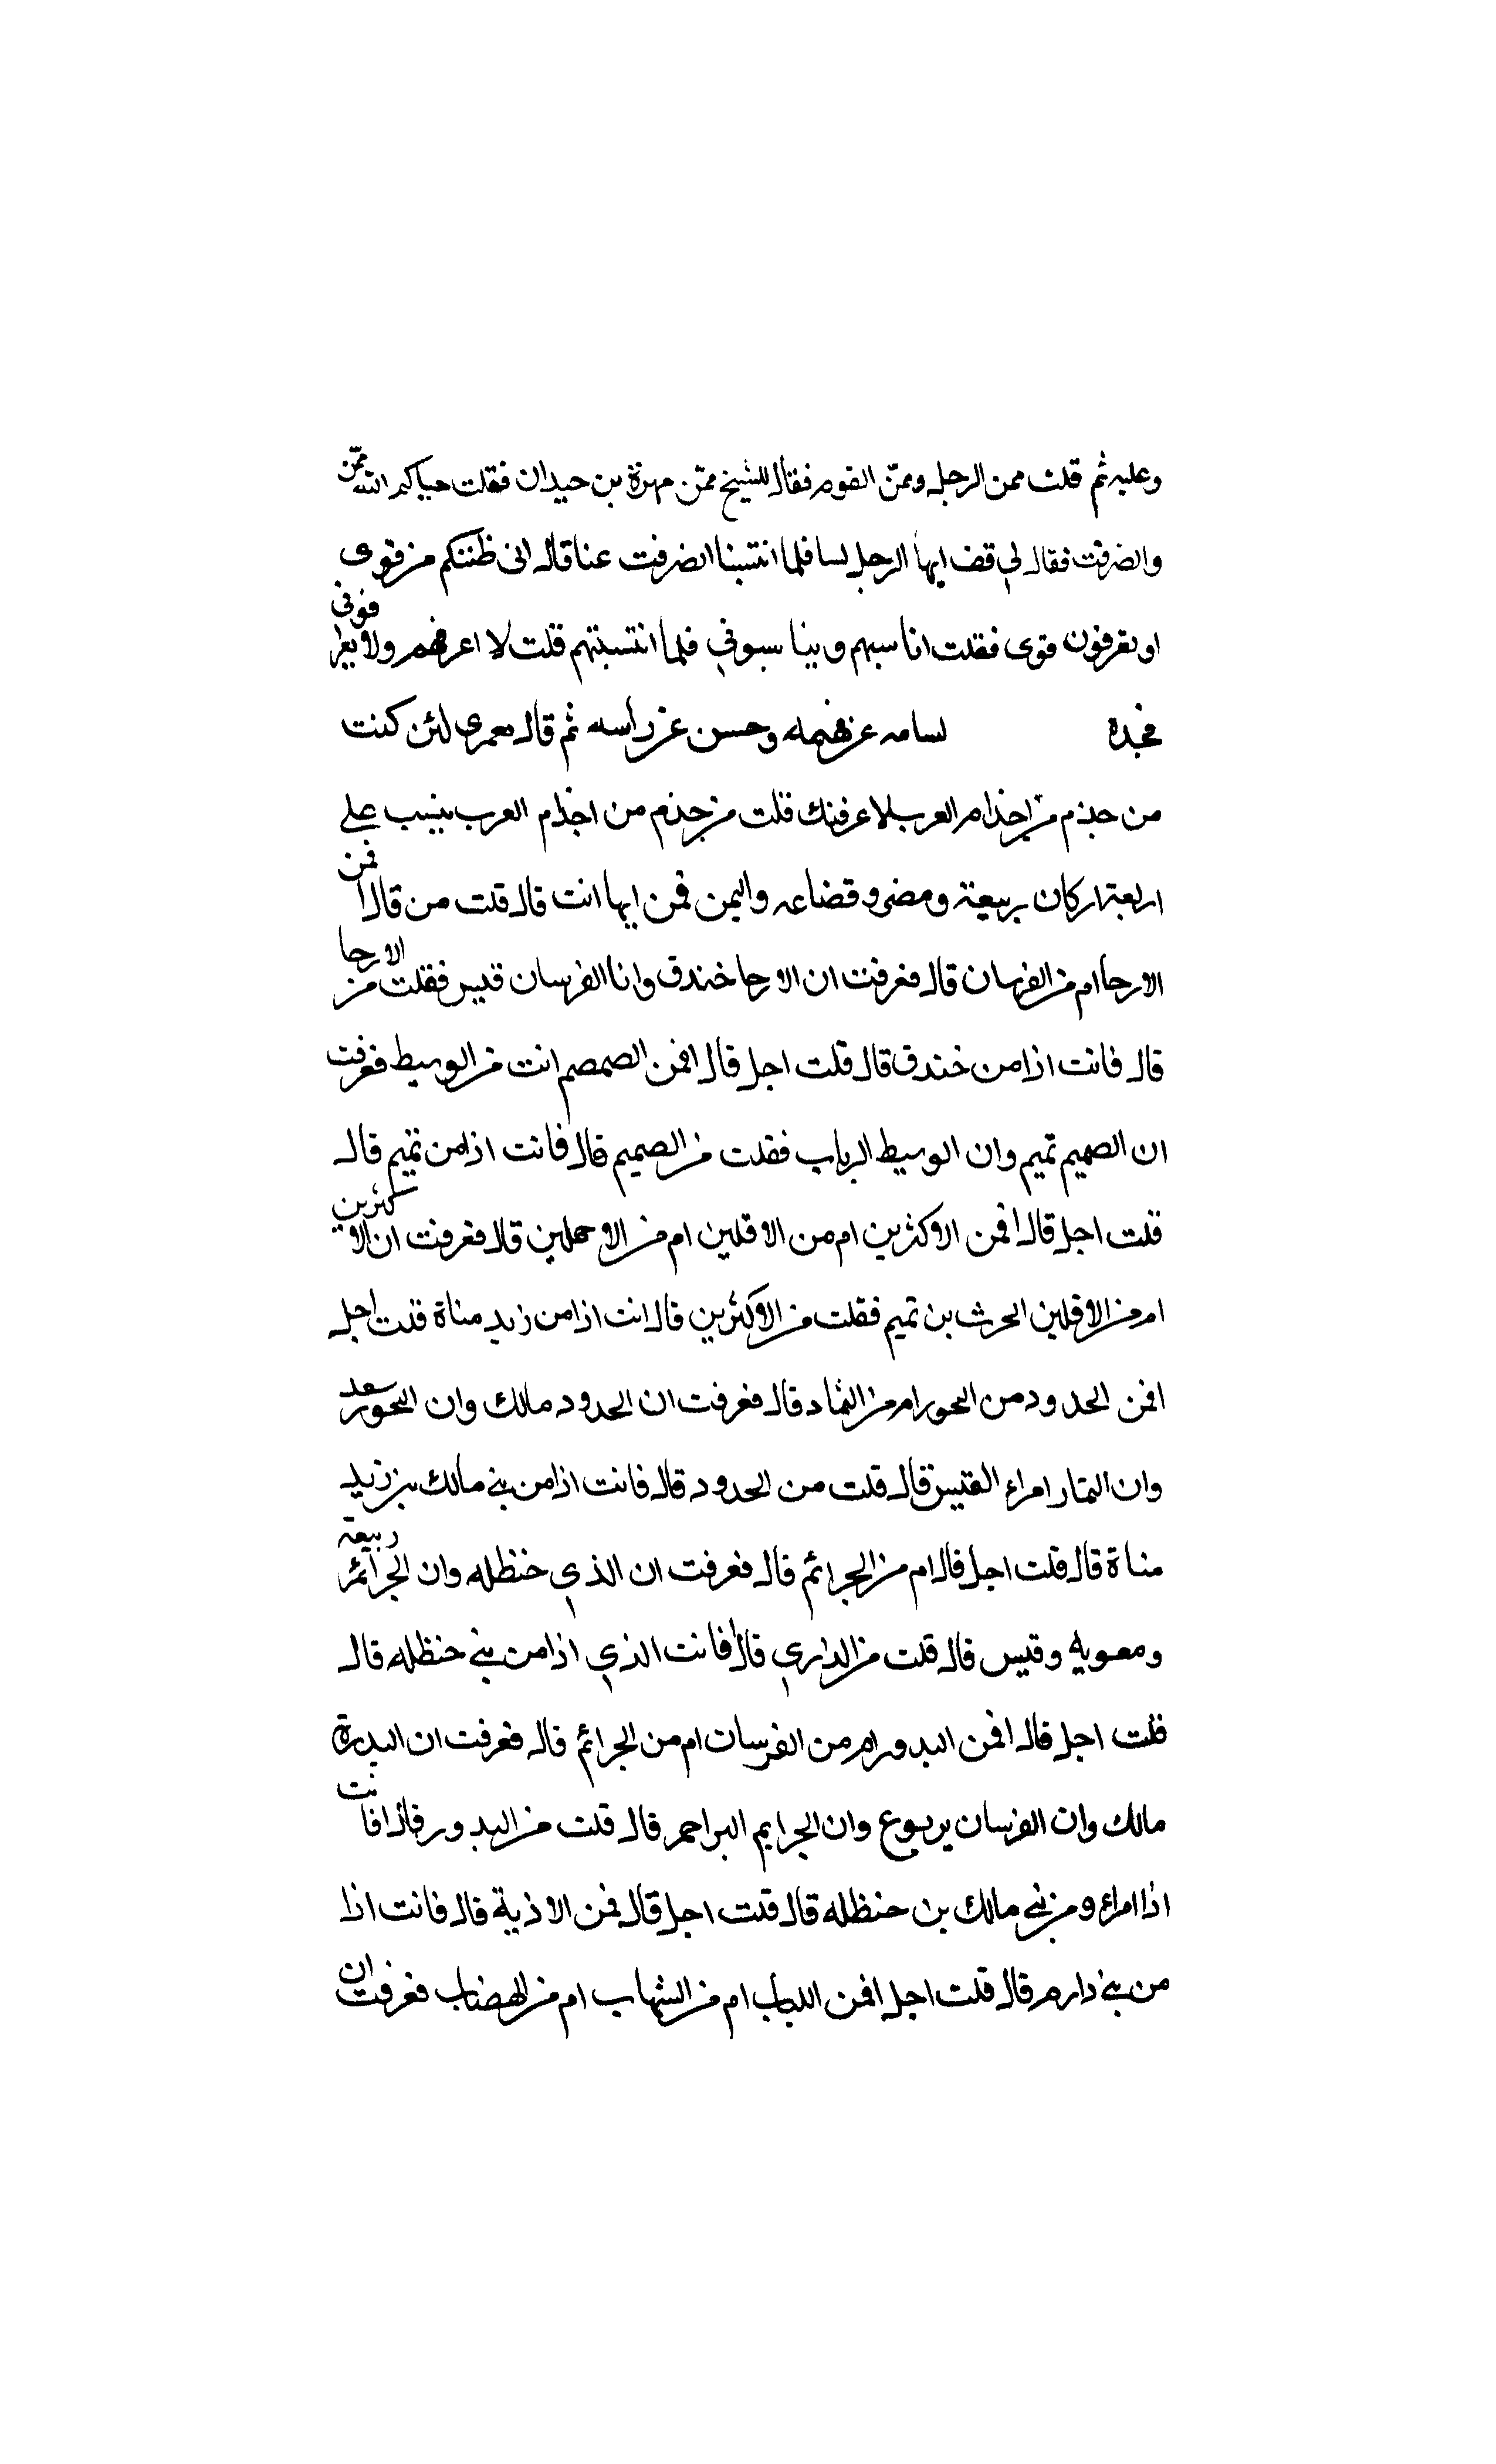 وعليه ثم قلت ممن الرجل وممن القوم فقال للشيخ ممن مهرة بن حيدان فقلت حياكم الله ممن
وانصرفت فقال لي قف ايها الرجل لسا فلما انتسبنا انصرفت عنا قال انى ظننتكم من قومى
او تعرفون قومى فقلت انا سبهم وبينا سبوني فلما انتسبتهم قلت لا اعرفهم ولا يعرفونى
فحدة لسامه عن فهمه وحسن عن راسه ثم قال لعمرى لئن كنت
من جذم من اجذام العرب لاعرفنك قلت من جذم من اجذام العرب ينسب على
اربعة اركان ربيعة ومضر وقضاعه واليمن فمن ايها انت قال قلت من قال افمن
الارحا ام من الفرسان قال فعرفت ان الارحا خندق وانا الفرسان قيس فقلت من الارحا
قال فانت اذا من خندق قال قلت اجل قال افمن الصمصم انت من الوسيط فعرفت
ان الصميم تميم وان الوسيط الرباب فقلت من الصميم قال فانت اذا من تميم قال
قلت اجل قال افمن الاكثرين ام من الاقلين ام من الاحملين قال فعرفت ان الاكثرين
ام من الاقلين الحرث بن تميم فقلت من الاكثرين قال انت اذا من زيد مناة قلت اجل
افمن الحدود من البحور ام من الثماد قال فعرفت ان الحدود مالك وان البحور سعد
وان الثمار امراء القيس قال قلت من الحدود قال فانت اذا من بني مالك بن زيد
مناة قال قلت اجل قال ام من الجرائم قال فعرفت ان الذي حنظله وان الجرائم ربيعة
ومعويه وقيس قال قلت من الذاري قال فانت الذي اذا من بني حنظله قال
قلت اجل قال افمن البدور ام من الفرسان ام من الجرائم قال فعرفت ان البدرة
مالك وان الفرسان يربوع وان الجرايم البراجم قال قلت من البدور قال افانت
اذا امراء ومن بني مالك بن حنظله قال قلت اجل قال فمن الاذية قال فانت اذا
من بني دارم قال قلت اجل افمن اللباب ام من الشهاب ام من الهضاب فعرفت ان